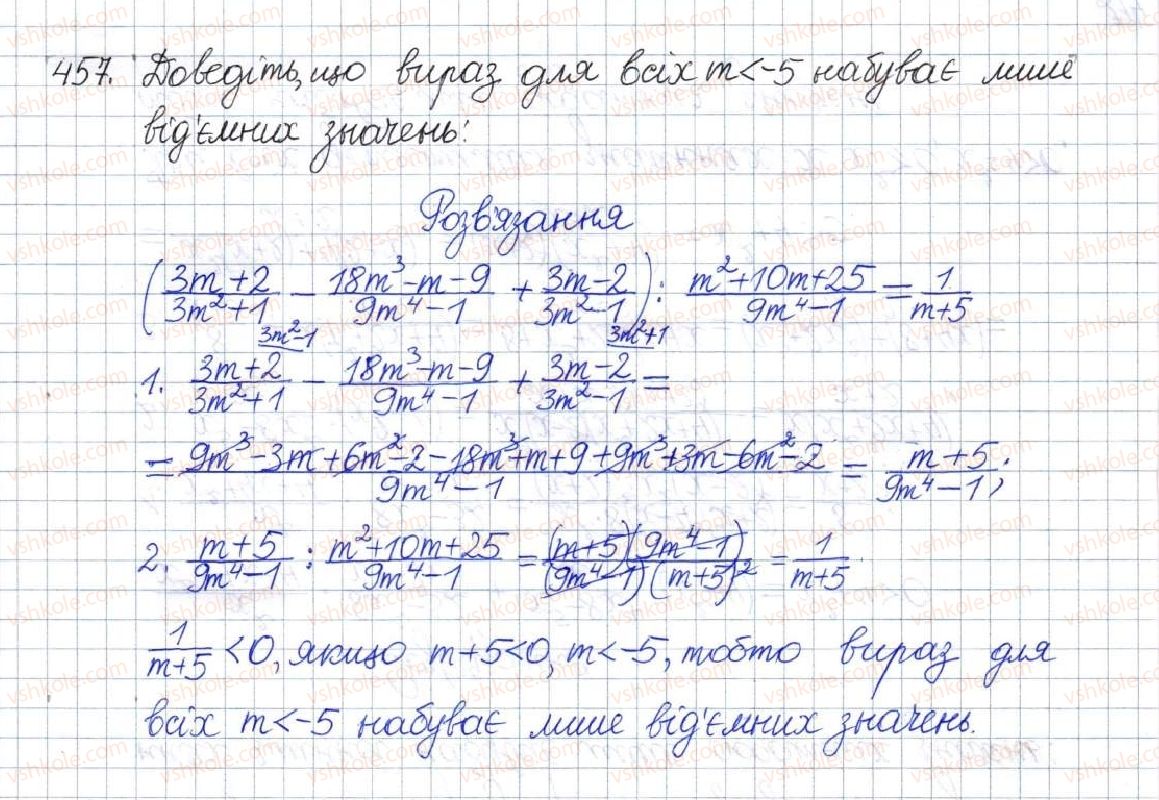 457. Доведіть, що вираз для всіх m<-5 набуває лише
від'ємних значень:
Розв'язання
((3m+2)/(3m²+1) - (18m³-m-9)/(9m⁴-1) + (3m-2)/(3m²-1)) : (m²+10m+25)/(9m⁴-1) = 1/(m+5)
3m²-1 3m²+1
1. (3m+2)/(3m²+1) - (18m³-m-9)/(9m⁴-1) + (3m-2)/(3m²-1) =
= (9m³-3m+6m²-2-18m³+m+9+9m³+3m-6m²-2)/(9m⁴-1) = (m+5)/(9m⁴-1);
2. (m+5)/(9m⁴-1) : (m²+10m+25)/(9m⁴-1) = ((m+5)(9m⁴-1))/((9m⁴-1)(m+5)²) = 1/(m+5).
1/(m+5) <0, якщо m+5<0, m<-5, тобто вираз для
всіх m<-5 набуває лише від'ємних значень.